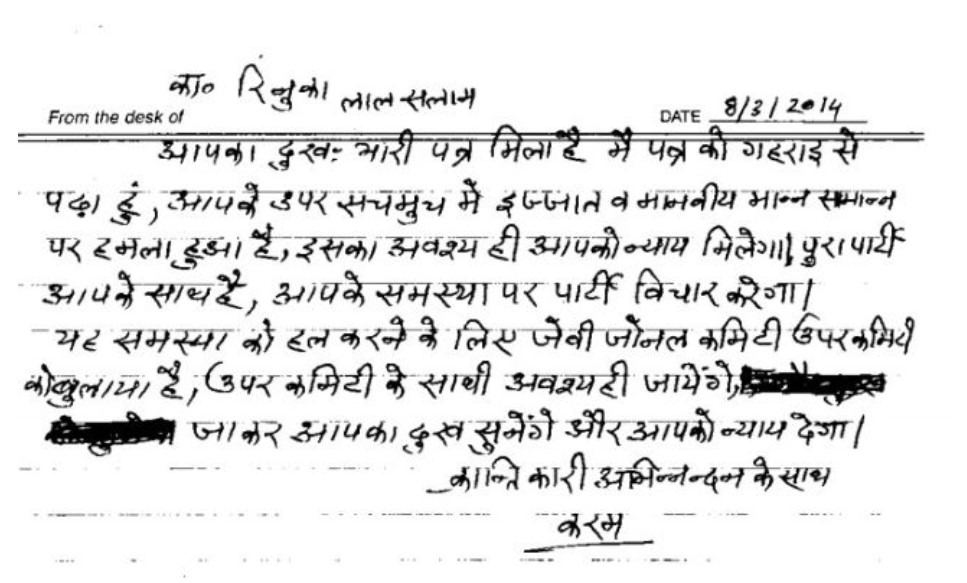 का० रिनुका लाल सलाम
From the desk of DATE 8/3/2014
आपका दुखः भारी पत्र मिला है मैं पत्र को गहराइ से
पढ़ा हुं, आपके उपर सचमुच में इज्जात व मानवीय मान्न समान्न
पर हमला हुआ है, इसका अवश्य ही आपको न्याय मिलेगा। पुरा पार्टी
आपके साथ है, आपके समस्या पर पार्टी विचार करेगा।
यह समस्या को हल करने के लिए जेवी जोनल कमिटी उपर कमिटी
को बुलाया है, उपर कमिटी के साथी अवश्य ही जायेंगे,
जाकर आपका दुख सुनेंगे और आपको न्याय देगा।
क्रान्तिकारी अभिन्नन्दन के साथ
करम